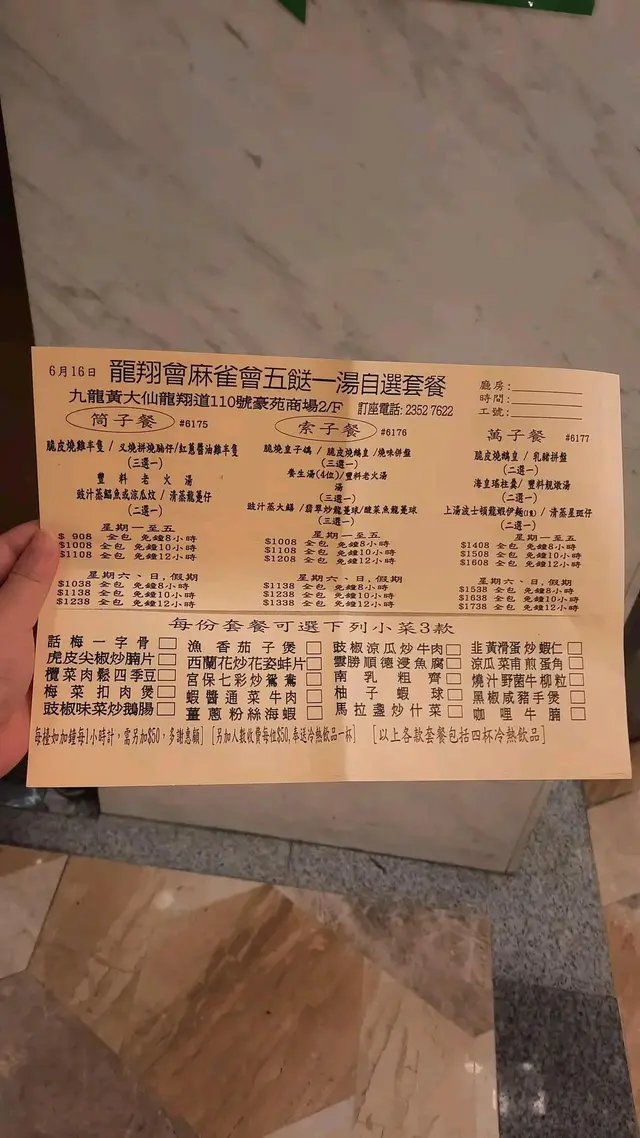 6月16日 龍翔會麻雀會五餸一湯自選套餐
九龍黃大仙龍翔道110號豪苑商場2/F 訂座電話: 2352 7622
廳房:
時間:
工號:
筒子餐 #6175
脆皮燒雞半隻 / 叉燒拼燒腩仔/紅蔥醬油雞半隻
(三選一)
豐料老火湯
豉汁蒸鯧魚或涼瓜炆 / 清蒸龍躉仔
(二選一)
星期一至五
$ 908 全包 免鐘8小時
$1008 全包 免鐘10小時
$1108 全包 免鐘12小時
星期六、日,假期
$1038 全包 免鐘8小時
$1138 全包 免鐘10小時
$1238 全包 免鐘12小時
索子餐 #6176
脆燒皇子鴿 / 脆皮燒鵝皇 /燒味併盤
(三選一)
養生湯(4位)/豐料老火湯
湯
(三選一)
豉汁蒸大鱔 /翡翠炒龍躉球/酸菜魚龍躉球
(三選一)
星期一至五
$1008 全包 免鐘8小時
$1108 全包 免鐘10小時
$1208 全包 免鐘12小時
星期六、日,假期
$1138 全包 免鐘8小時
$1238 全包 免鐘10小時
$1338 全包 免鐘12小時
萬子餐 #6177
脆皮燒鵝皇 / 乳豬拼盤
(二選一)
海皇瑤柱羹/ 豐料靚燉湯
(二選一)
上湯波士頓龍蝦伊麵 / 清蒸星斑仔
(二選一)
星期一至五
$1408 全包 免鐘8小時
$1508 全包 免鐘10小時
$1608 全包 免鐘12小時
星期六、日,假期
$1538 全包 免鐘8小時
$1638 全包 免鐘10小時
$1738 全包 免鐘12小時
每份套餐可選下列小菜3款
話梅一字骨 漁香茄子煲 豉椒涼瓜炒牛肉 韭黃滑蛋炒蝦仁
虎皮尖椒炒腩片 西蘭花炒花姿蚌片 雲勝順德浸魚腐 涼瓜菜甫煎蛋角
欖菜肉鬆四季豆 宮保七彩炒鴛鴦 南乳粗齋 燒汁野菌牛柳粒
梅菜扣肉煲 蝦醬通菜牛肉 柚子蝦球 黑椒咸豬手煲
豉椒味菜炒鵝腸 薑蔥粉絲海蝦 馬拉盞炒什菜 咖喱牛腩
每檯如加鐘每1小時計,需另加$50,多謝惠顧] [另加人數收費每位$50,奉送冷熱飲品一杯] [以上各款套餐包括四杯冷熱飲品]